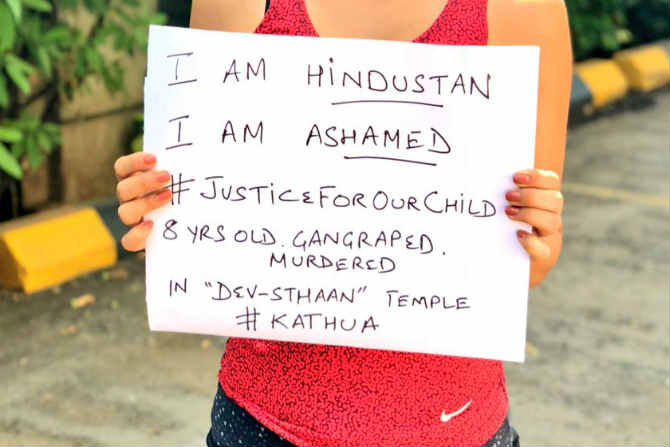 I AM HINDUSTAN
I AM ASHAMED
#JUSTICEFOROURCHILD
8 YRS OLD. GANGRAPED.
MURDERED
IN "DEV-STHAAN" TEMPLE
#KATHUA